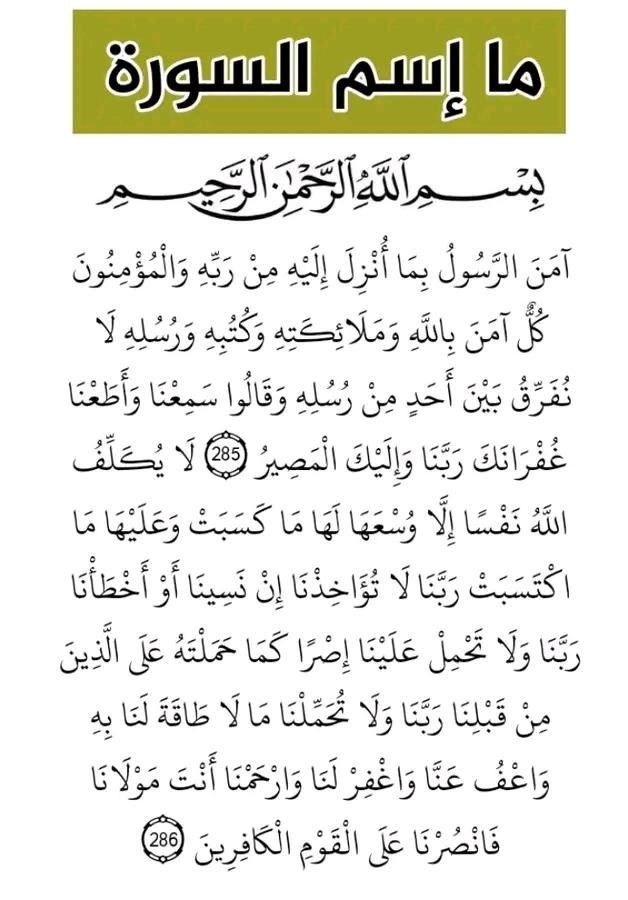 ما إسم السورة
بِسْمِ ٱللَّهِ ٱلرَّحْمَٰنِ ٱلرَّحِيمِ
آمَنَ الرَّسُولُ بِمَا أُنْزِلَ إِلَيْهِ مِنْ رَبِّهِ وَالْمُؤْمِنُونَ
كُلٌّ آمَنَ بِاللَّهِ وَمَلَائِكَتِهِ وَكُتُبِهِ وَرُسُلِهِ لَا
نُفَرِّقُ بَيْنَ أَحَدٍ مِنْ رُسُلِهِ وَقَالُوا سَمِعْنَا وَأَطَعْنَا
غُفْرَانَكَ رَبَّنَا وَإِلَيْكَ الْمَصِيرُ 285 لَا يُكَلِّفُ
اللَّهُ نَفْسًا إِلَّا وُسْعَهَا لَهَا مَا كَسَبَتْ وَعَلَيْهَا مَا
اكْتَسَبَتْ رَبَّنَا لَا تُؤَاخِذْنَا إِنْ نَسِينَا أَوْ أَخْطَأْنَا
رَبَّنَا وَلَا تَحْمِلْ عَلَيْنَا إِصْرًا كَمَا حَمَلْتَهُ عَلَى الَّذِينَ
مِنْ قَبْلِنَا رَبَّنَا وَلَا تُحَمِّلْنَا مَا لَا طَاقَةَ لَنَا بِهِ
وَاعْفُ عَنَّا وَاغْفِرْ لَنَا وَارْحَمْنَا أَنْتَ مَوْلَانَا
فَانْصُرْنَا عَلَى الْقَوْمِ الْكَافِرِينَ 286